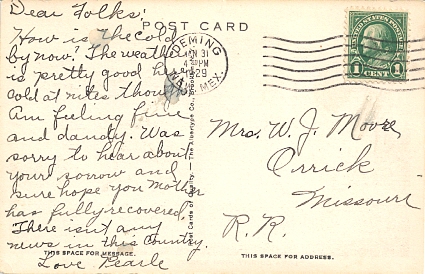 Dear Folks:
POST CARD
How is the cold
by now? The weather
is pretty good here
cold at nites though
Am feeling fine
and dandy. Was
sorry to hear about
your sorrow and
sure hope you Mother
has fully recovered.
There isn't any
news in this country.
Love Pearle
THIS SPACE FOR MESSAGE.
DEMING
JAN 31
4 PM
1929
N. MEX.
UNITED STATES POSTAGE
1 CENT 1
Mrs. W. J. Moore,
Orrick
Missouri
R. R.
THIS SPACE FOR ADDRESS.
Post Cards of Quality. — The Albertype Co., Brooklyn